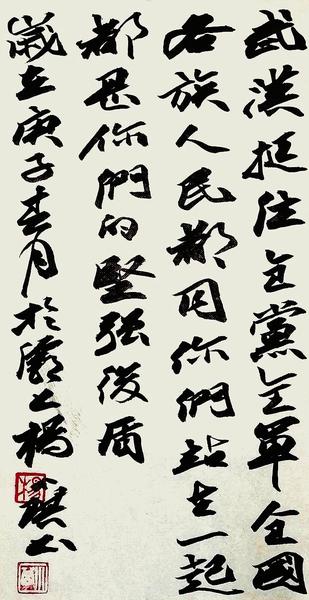 武漢挺住全黨全軍全國
各族人民都同你們站在一起
都是你們的堅強後盾
歲在庚子春月於灞上楊書